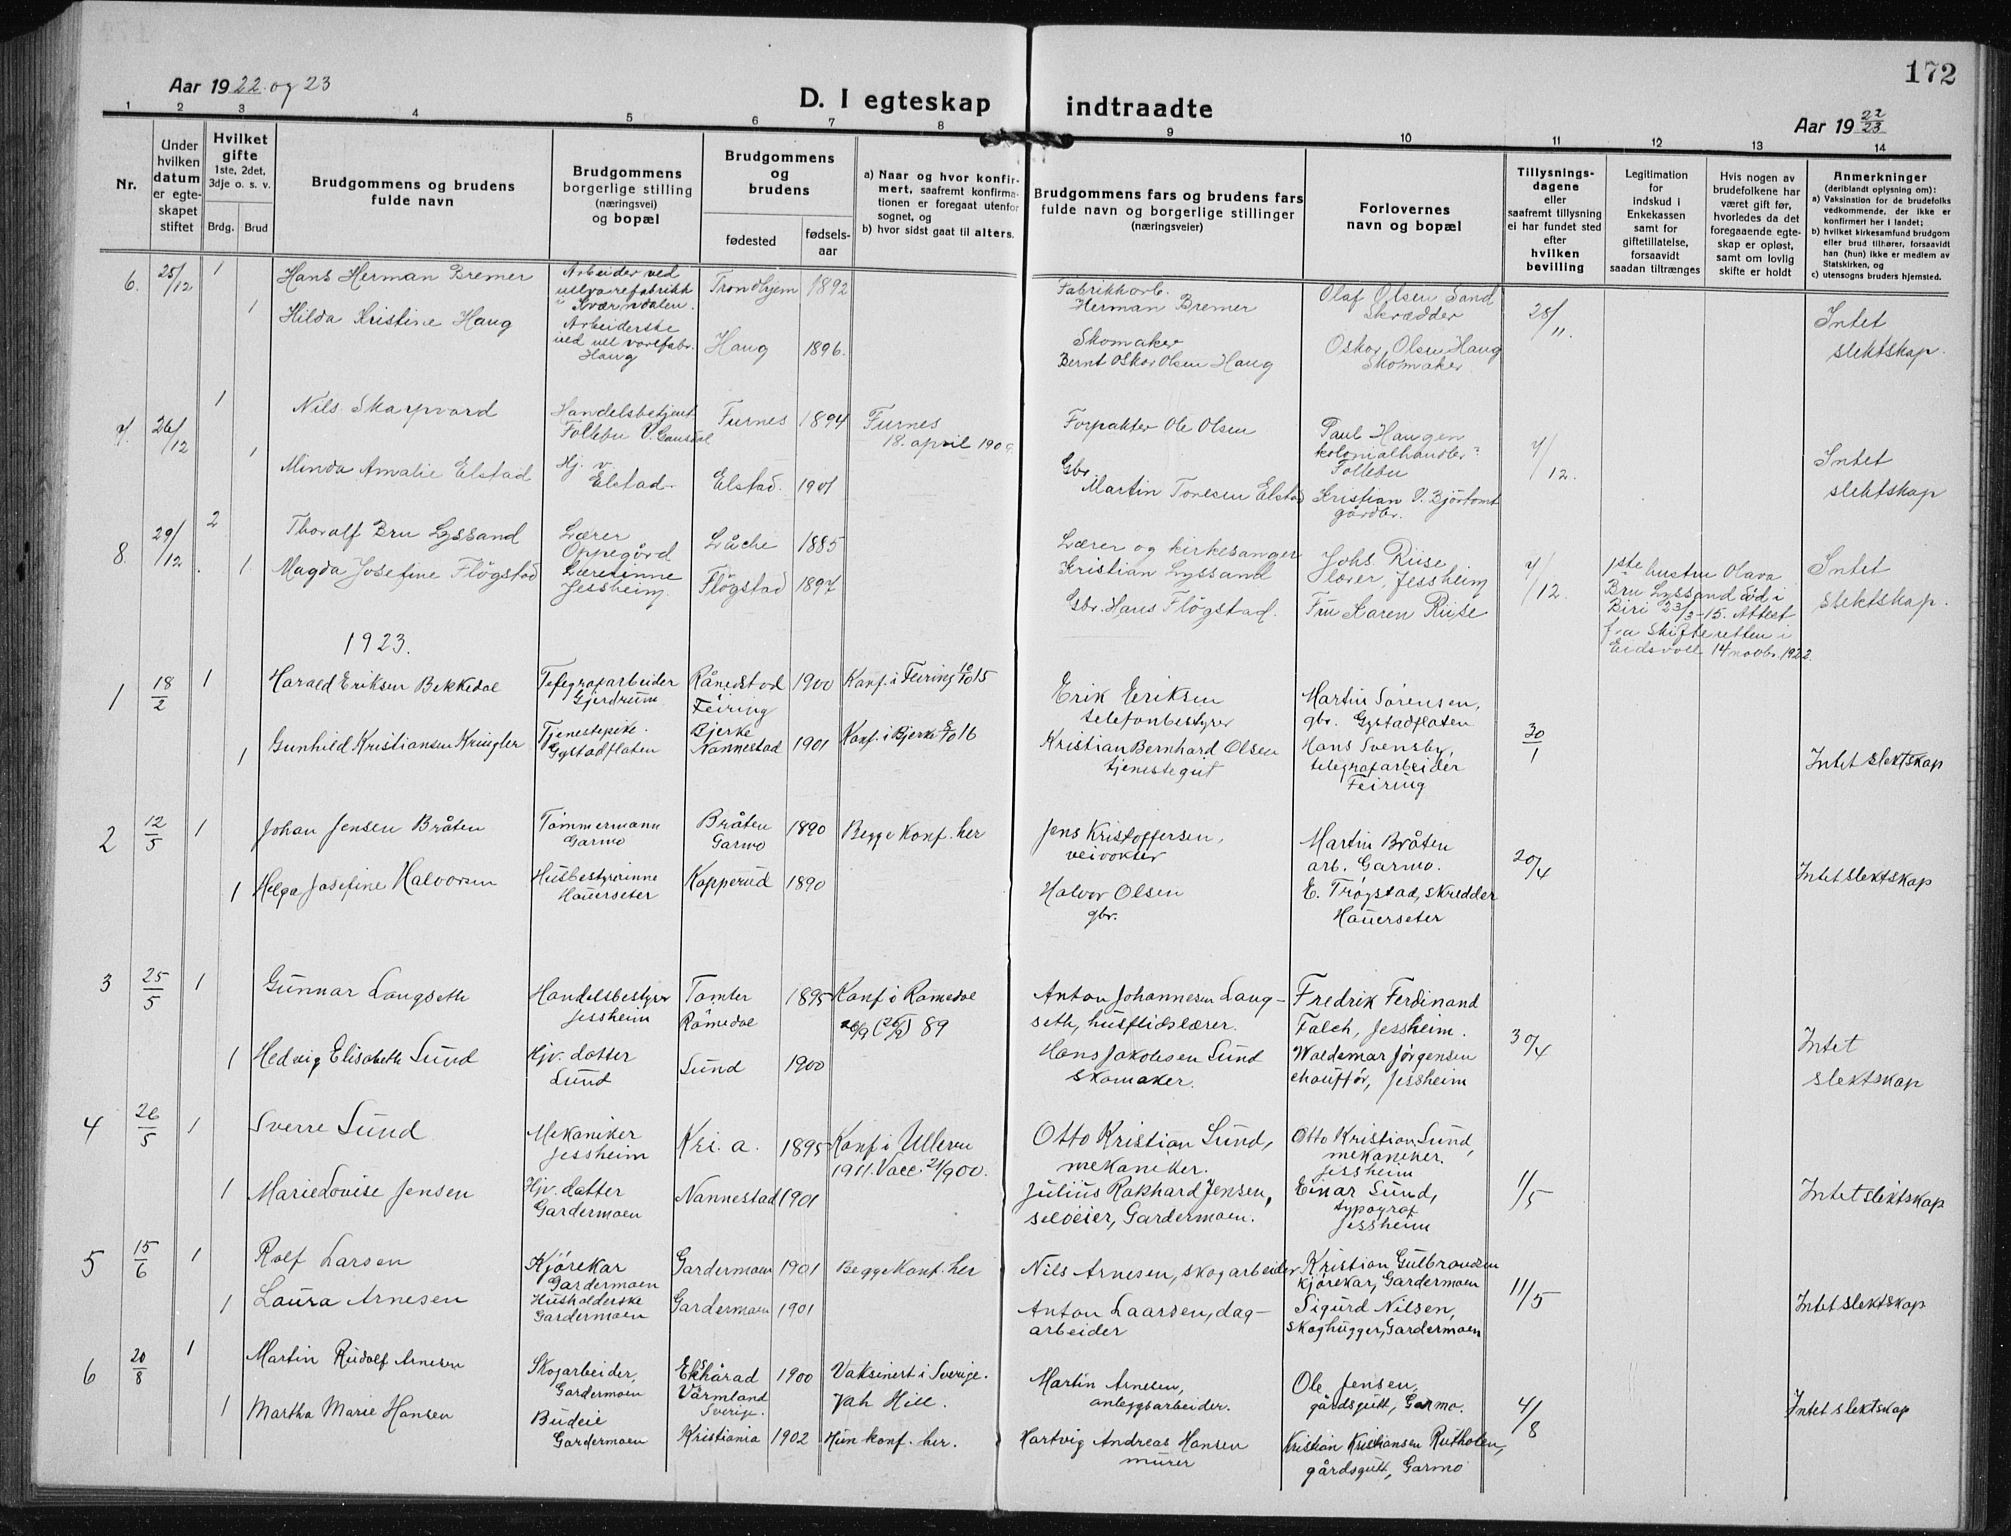 172
Aar 1922 og 23
D. I egteskap indtraadte
Aar 19 22/23
1 2 3 4 5 6 7 8 9 10 11 12 13 14
Nr.
Under hvilken datum er egteskapet stiftet
Hvilket gifte 1ste, 2det, 3dje o. s. v.
Brdg. Brud
Brudgommens og brudens fulde navn
Brudgommens borgerlige stilling (næringsvei) og bopæl
Brudgommens og brudens
fødested
fødselsaar
a) Naar og hvor konfirmert, saafremt konfirmationen er foregaat utenfor sognet, og
b) hvor sidst gaat til alters.
Brudgommens fars og brudens fars fulde navn og borgerlige stillinger (næringsveier)
Forlovernes navn og bopæl
Tillysningsdagene eller saafremt tillysning ei har fundet sted efter hvilken bevilling
Legitimation for indskud i Enkekassen samt for giftetillatelse, forsaavidt saadan tiltrænges
Hvis nogen av brudefolkene har været gift før, hvorledes da det foregaaende egteskap er opløst, samt om lovlig skifte er holdt
Anmerkninger (deriblandt oplysning om):
a) Vaksination for de brudefolks vedkommende, der ikke er konfirmert her i landet;
b) hvilket kirkesamfund brudgom eller brud tilhører, forsaavidt han (hun) ikke er medlem av Statskirken, og
c) utensogns bruders hjemsted.
6. 25/12 1 Hans Herman Bremer
Arbeider ved uldvarefabrikk i Kværndalen.
Trondhjem 1892
Fabrikkarb. Herman Bremer
Olaf Olsen Sand Skrædder
28/11.
1 Hilda Kristine Haug
Arbeiderske ved ull varefabr. Haug
Haug 1896.
Skomaker Bernt Oskar Olsen Haug
Oskar Olsen Haug Skomaker
Intet slektskap.
7. 26/12 1 Nils Skarpvard
Handelsbetjent Follebu
Furnes 1894
Furnes 18. april 190
Forpakter Ole Olsen
Paul Haugen kolonialhandler Follebu
7/12.
1 Minda Amalie Elstad
Hj. v. Elstad.
Elstad. 1901
Gbr. Martin Toresen Elstad
Kristian O. gårdbr.
Intet slektskap
8. 29/12. 2 Thoralf Bru Lyssand
Lærer Oppegård
1885
Lærer og kirkesanger Kristian Lyssand
Johs. Riise lærer, Jessheim
7/12.
1ste hustru Olava Bru Lyssand död i Biri 23/3-15. Attest fra Skifteretten i Eidsvoll 14 novbr. 1922.
1. Magda Josefine Flögstad
Lærerinne Jessheim.
Flögstad 1897
Gbr. Hans Flögstad.
Fru Karen Riise
Intet slektskap.
1923.
1 18/2 1 Harald Eriksen Bekkedal
Telegrafarbeider Gjerdrum
Rånåstad Feiring 1900
Konf. i Feiring 10/10 15
Erik Eriksen telefonbestyrer
Martin Sørensen, gbr. Gystadflaten
30/1
1 Gunhild Kristiansen Kringler
Tjenestepike. Gystadflaten
Bjerke Nannestad 1901
Konf. i Bjerke 8/10 16
Kristian Bernhard Olsen tjenestegut
Hans Svensby, telegrafarbeider Feiring
Intet slektskap
2 12/5 1 Johan Jensen Bråten
Tømmermann Garmo
Bråten Garmo 1890
Begge konf. her
Jens Kristoffersen, veivokter
Martin Bråten arb. Garmo.
20/4
1 Helga Josefine Halvorsen
Husbestyrinne Hauerseter
Kopperud 1890
Halvor Olsen gbr.
E. Trøgstad, skredder Hauerseter
Intet slektskap
3 25/5 1 Gunnar Langseth
Handelsbestyrer Jessheim
Tomter Romedal 1895
Konf. i Romedal 26/9 (26/2) 89
Anton Johannesen Langseth, husflidslærer.
Fredrik Ferdinand Falch, Jessheim.
30/4
1 Hedvig Elisabeth Sund
Hjv. datter Sund
Sund 1900
Hans Jakobsen Sund skomaker.
Waldemar Jørgensen chauffør, Jessheim
Intet slektskap
4 26/5 1 Sverre Sund
Mekaniker Jessheim
Kri. a. 1895
Konf. i Ullern 1911. Vacc. 21/9 00.
Otto Kristian Sund, mekaniker.
Otto Kristian Sund, mekaniker. Jessheim
1/5
1 Marie Lovise Jensen
Hjv. datter Gardermoen
Nannestad 1901
Julius Rakhard Jensen, seløeier, Gardermoen.
Einar Sund, typograf Jessheim
Intet slektskap
5 15/6 1 Rolf Larsen
Kjørekar Gardermoen
Gardermoen 1901
Begge konf. her
Nils Arnesen, skogarbeider
Kristian Gulbrandsen kjørekar, Gardermoen
11/5
1 Laura Arnesen
Husholderske Gardermoen
Gardermoen 1901
Anton Laarsen, dagarbeider
Sigurd Nilsen, skoghugger, Gardermoen
Intet slektskap
6 20/8 1 Martin Rudolf Arnesen
Skogarbeider, Gardermoen
Ekshärad Värmland Sverige. 1900
Vaksinert i Sverige.
Martin Arnesen, anleggsarbeider.
Ole Jensen, gårdsgutt, Garmo.
4/8
1 Martha Marie Hansen
Budeie Gardermoen
Kristiania 1902
Hun konf. her.
Hartvig Andreas Hansen murer
Kristian Kristiansen Rutholen, gårdsgutt, Garmo
Intet slektskap